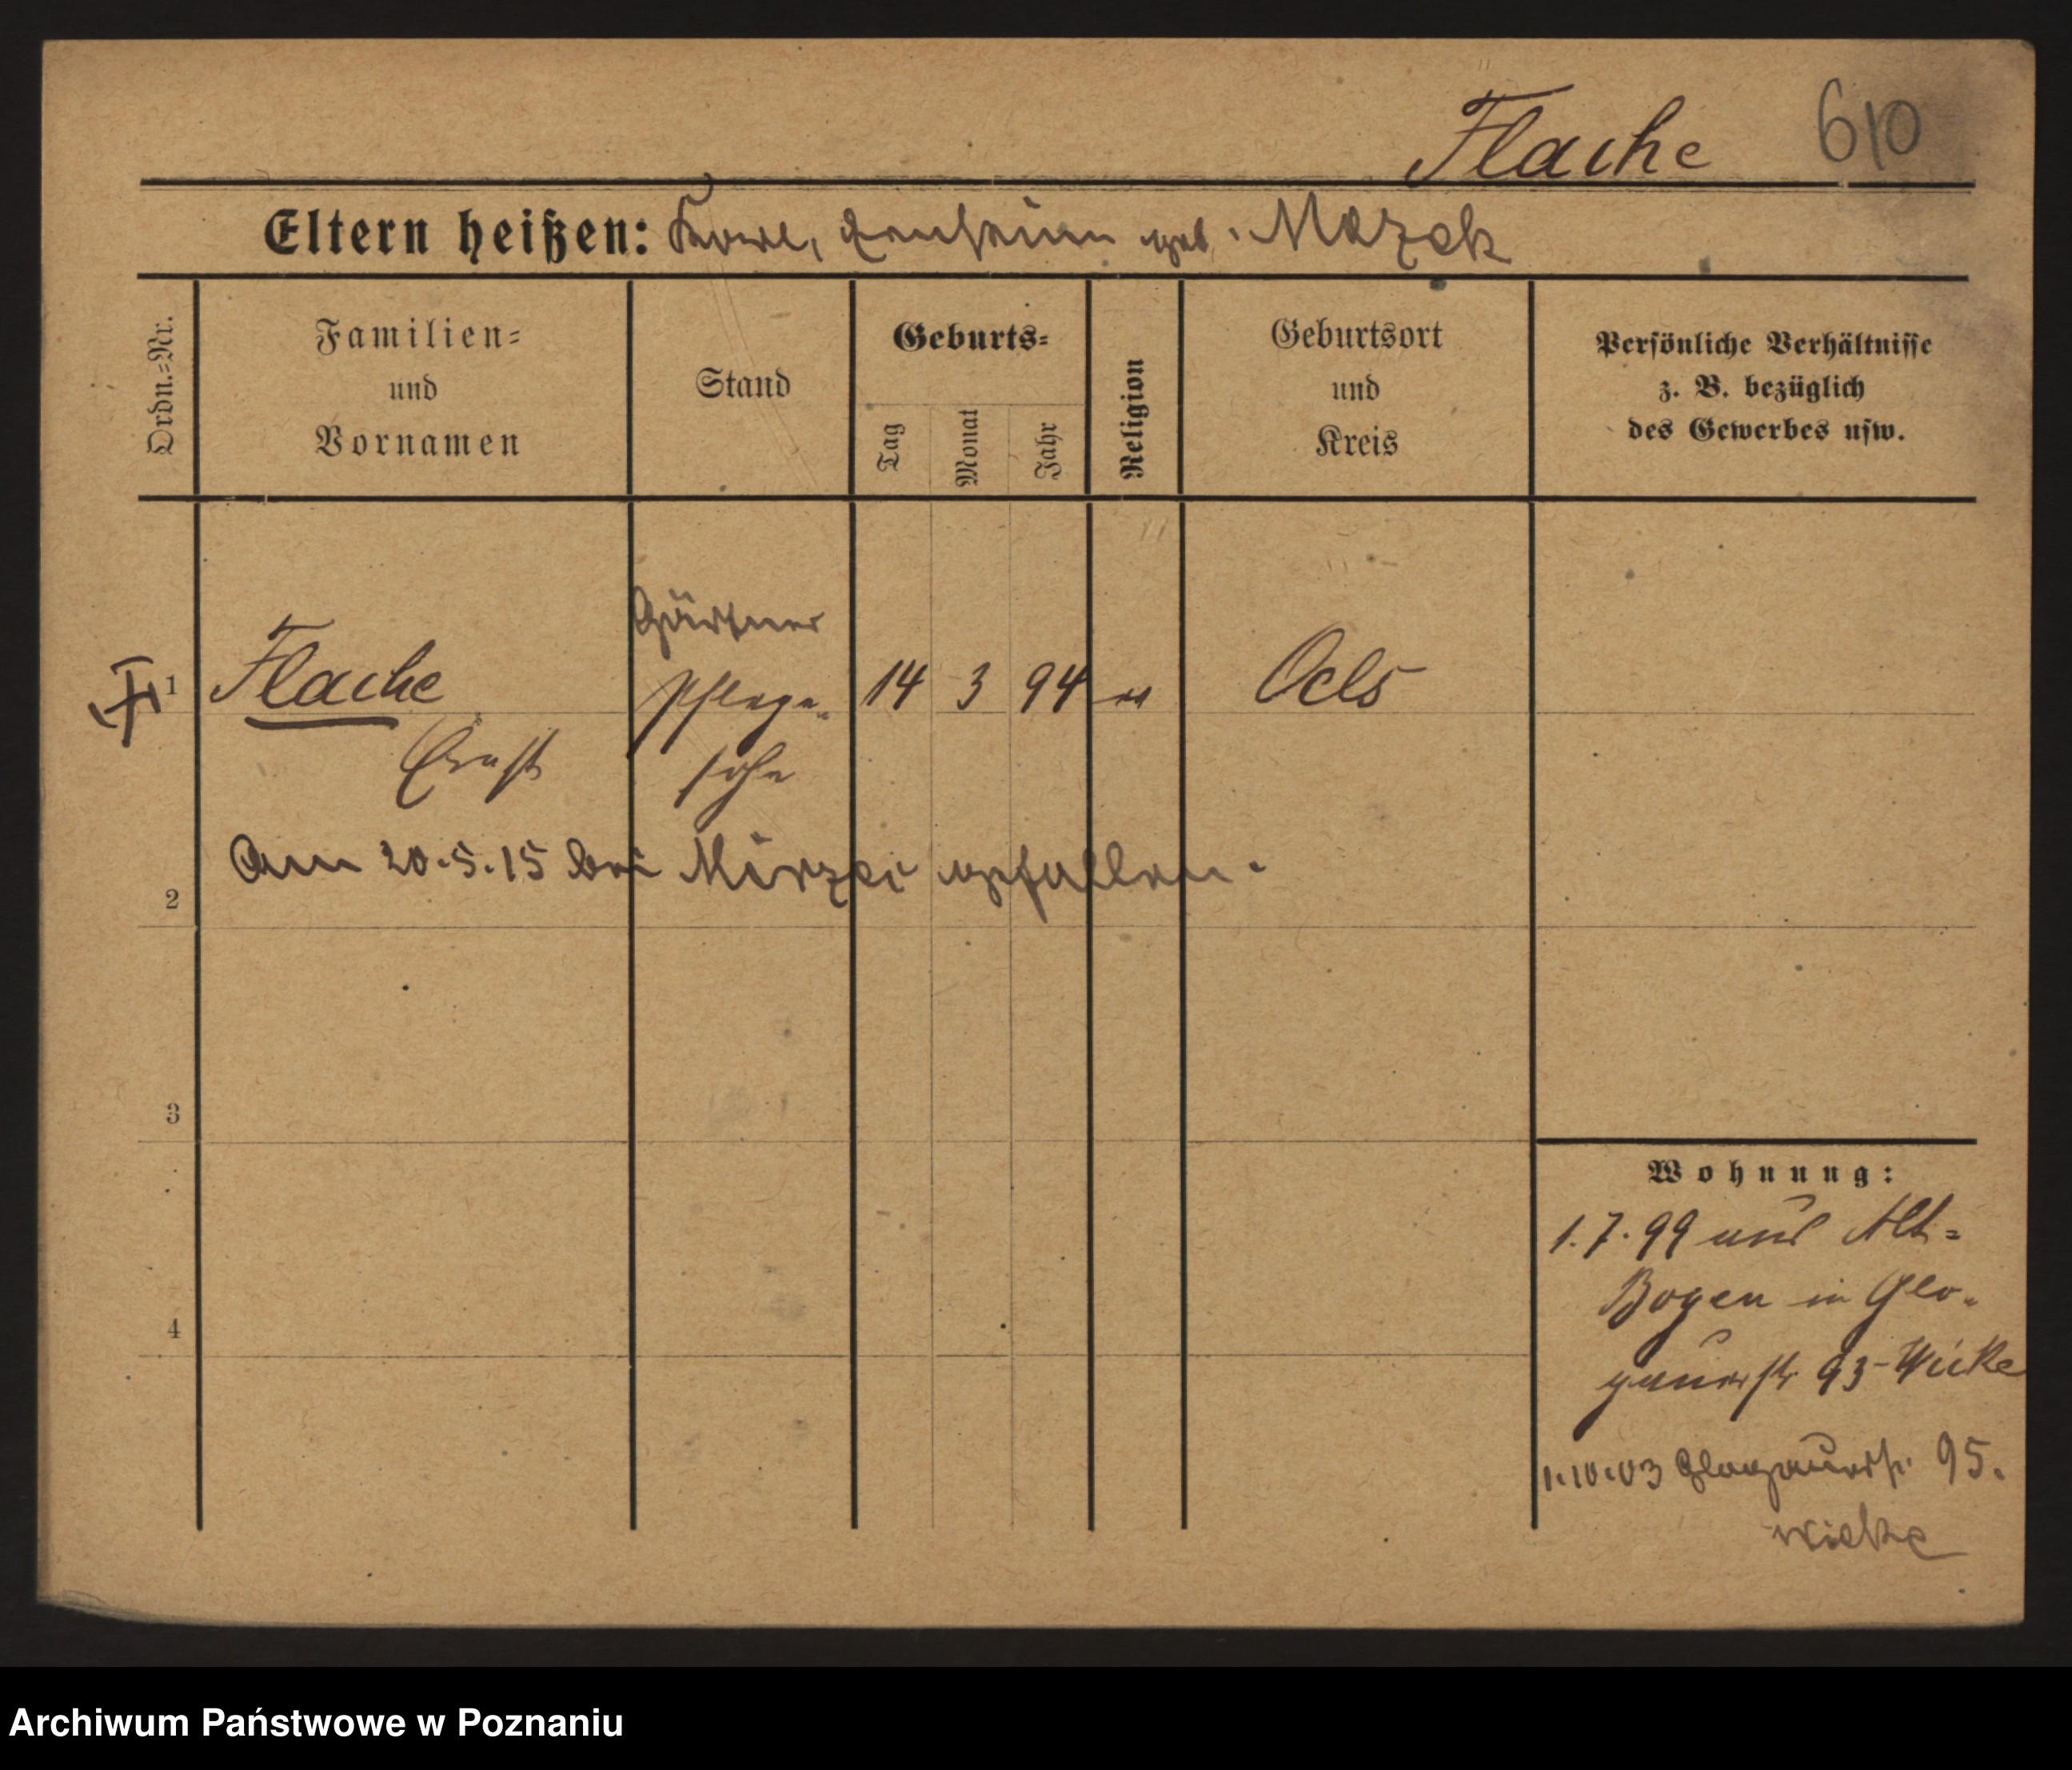 Flache 610
Eltern heißen: Karl, geb. Mozek
Ordn.=Nr.
Familien=
und
Vornamen
Stand
Geburts=
Tag
Monat
Jahr
Religion
Geburtsort
und
Kreis
Persönliche Verhältnisse
z. B. bezüglich
des Gewerbes usw.
Gärtner
1 Flache Pflege- 14 3 94 Oels
Ernst sohn
Am 20.5.15 bei gefallen.
2
3
4
Wohnung:
1.7.99 aus Alt=
Boyen in Glo-
gauerstr 93-Wicke
1.10.03 Glogauerstr. 95.
Wicke
Archiwum Państwowe w Poznaniu